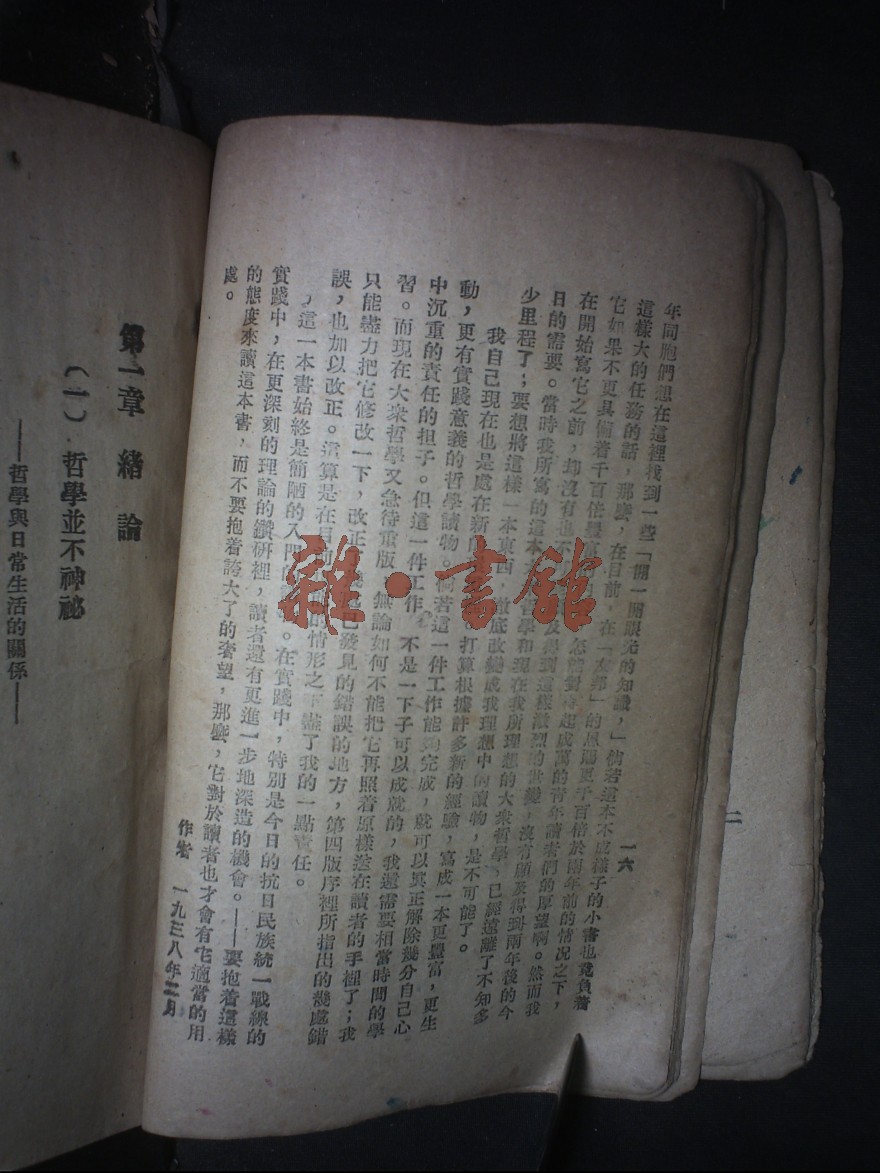 一六
年同胞們想在這裡找到一些「開一開眼光的知識，」倘若這本不成樣子的小書也竟負着
這樣大的任務的話，那麼，在目前，在「友邦」的恩賜更千百倍於兩年前的情況之下，
它如果不更具備着千百倍豐富的怎能對得起成萬的青年讀者們的厚望啊。然而我
在開始寫它之前，却沒有也不及得到這樣激烈的世變，沒有顧及得到兩年後的今
日的需要。當時我所寫的這本大衆哲學和現在我所理想的大衆哲學，已經遠離了不知多
少里程了；要想將這樣一本東西，徹底改變成我理想中的讀物，是不可能了。
我自己現在也是處在新的打算根據許多新的經驗，寫成一本更豐富，更生
動，更有實踐意義的哲學讀物。倘若這一件工作能夠完成，就可以眞正解除幾分自己心
中沉重的責任的担子。但這一件工作，不是一下子可以成就的，我還需要相當時間的學
習。而現在大衆哲學又急待重版，無論如何不能把它再照着原樣送在讀者的手裡了；我
只能盡力把它修改一下，改正發見的錯誤的地方，第四版序裡所指出的幾處錯
誤，也加以改正。這算是在目前的情形之下盡了我的一點責任。
這一本書始終是簡陋的入門。在實踐中，特別是今日的抗日民族統一戰線的
實踐中，在更深刻的理論的鑽研裡，讀者還有更進一步地深造的機會。——要抱着這樣
的態度來讀這本書，而不要抱着誇大了的奢望，那麼，它對於讀者也才會有它適當的用
處。
作者 一九三八年二月
第一章 緒論
（一）哲學並不神祕
——哲學與日常生活的關係——
二
雜·書館